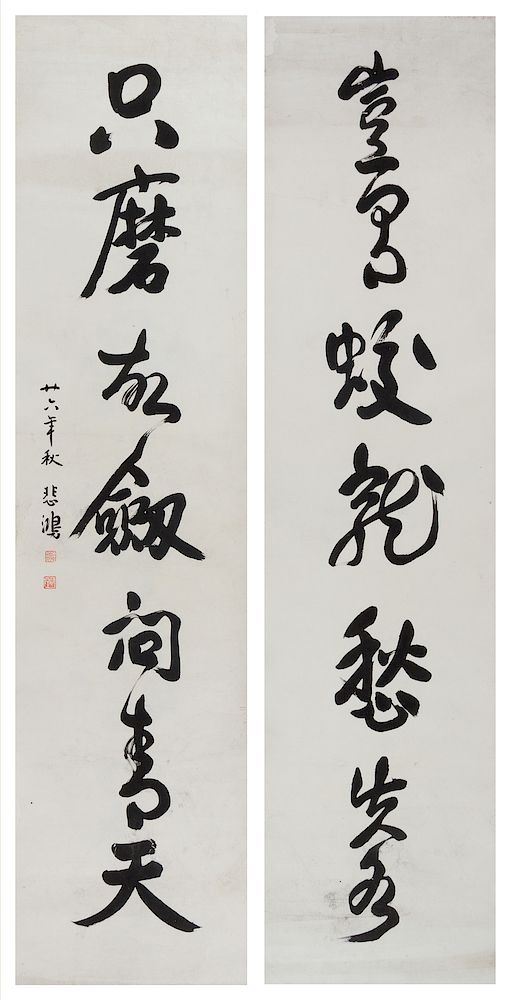 豈蛟龍愁失
只磨故劔問青天
廿六年秋 悲鴻